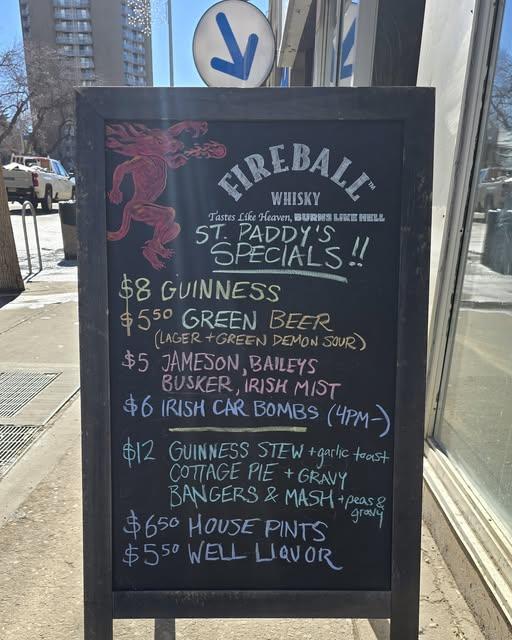 FIREBALL™
WHISKY
Tastes Like Heaven, BURNS LIKE HELL
ST. PADDY'S
SPECIALS!!
$8 GUINNESS
$5⁵⁰ GREEN BEER
(LAGER + GREEN DEMON SOUR)
$5 JAMESON, BAILEYS
BUSKER, IRISH MIST
$6 IRISH CAR BOMBS (4PM-)
$12 GUINNESS STEW + garlic toast
COTTAGE PIE + GRAVY
BANGERS & MASH + peas &
gravy
$6⁵⁰ HOUSE PINTS
$5⁵⁰ WELL LIQUOR